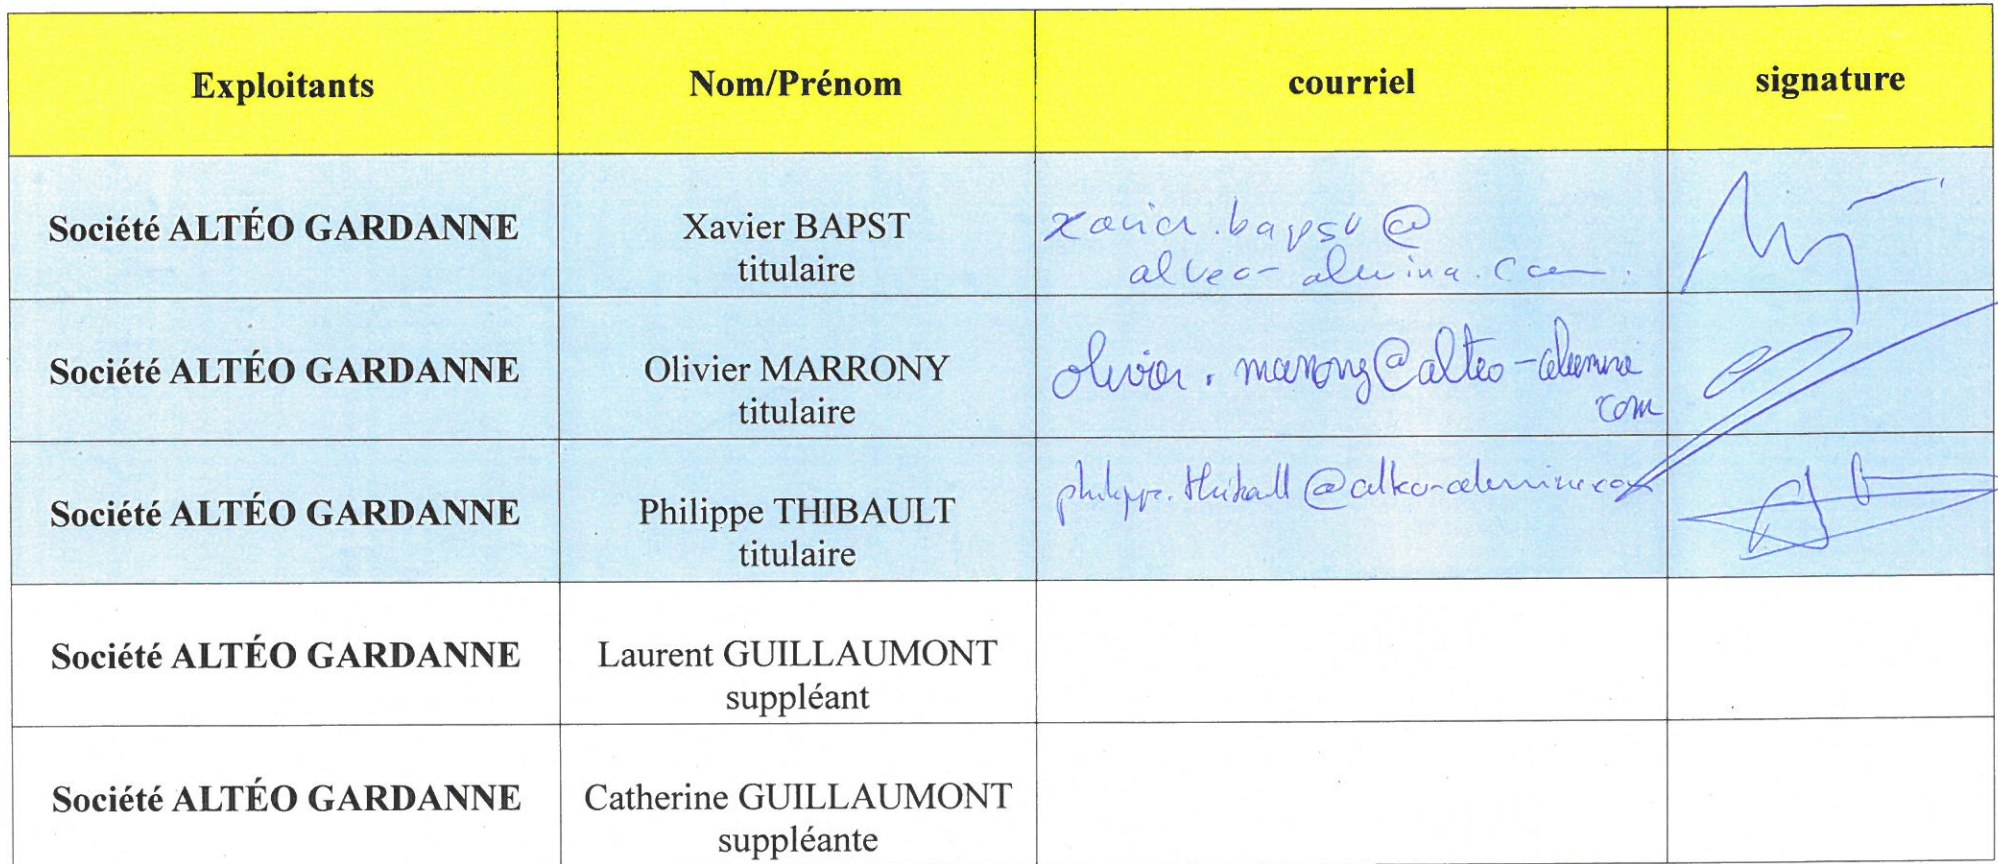 Exploitants
Nom/Prénom
courriel
signature
Société ALTÉO GARDANNE
Xavier BAPST
titulaire
xavier.bapst@
alteo-alumina.com.
Société ALTÉO GARDANNE
Olivier MARRONY
titulaire
olivier.marrony@alteo-alumina
com
Société ALTÉO GARDANNE
Philippe THIBAULT
titulaire
philippe.thibault@alteo-alumina.com
Société ALTÉO GARDANNE
Laurent GUILLAUMONT
suppléant
Société ALTÉO GARDANNE
Catherine GUILLAUMONT
suppléante